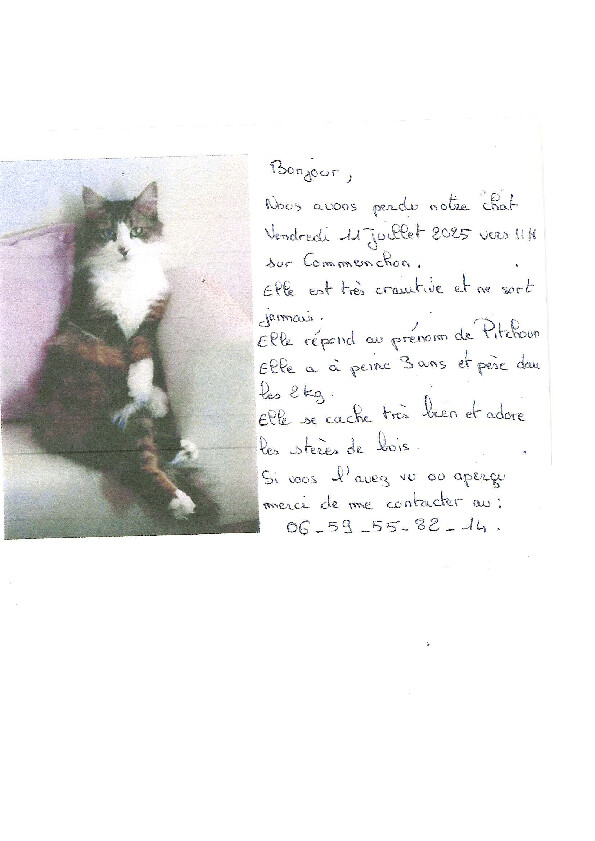 Bonjour,
Nous avons perdu notre chat
Vendredi 11 juillet 2025 vers 11H
sur Commenchon.
Elle est très craintive et ne sort
jamais.
Elle répond au prénom de Pitchoun
Elle a à peine 3 ans et pèse dans
les 2kg.
Elle se cache très bien et adore
les stères de bois.
Si vous l'avez vu ou aperçu
merci de me contacter au:
06-59-55-82-14.